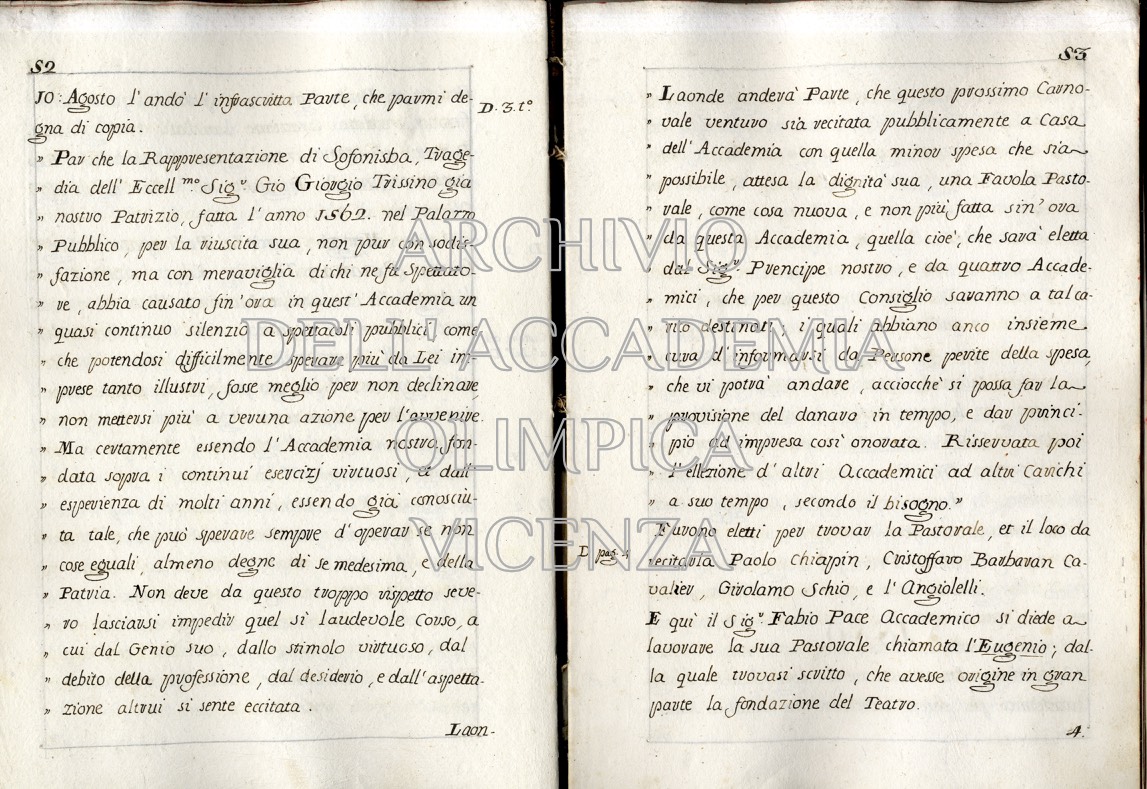 82
10: Agosto l'andò l'infrascritta Parte, che parmi de-
gna di copia.
D. 3. t.º
" Par che la Rappresentazione di Sofonisba, Trage-
" dia dell' Eccell.mo Sig.r Gio Giorgio Trissino già
" nostro Patrizio, fatta l'anno 1562. nel Palazzo
" Pubblico, per la riuscita sua, non pur con sodis-
" fazione, ma con meraviglia di chi ne fù Spettato-
" re, abbia causato fin'ora in quest'Accademia un
" quasi continuo silenzio a spettacoli pubblici, come
" che potendosi difficilmente sperare più da Lei im-
" prese tanto illustri, fosse meglio per non declinare
" non mettersi più a veruna azione per l'avvenire.
" Ma certamente essendo l'Accademia nostra fon-
" data sopra i continui esercizj virtuosi, et dall'
" esperienza di molti anni, essendo già conosciu-
" ta tale, che può sperare sempre d'operar se non
" cose eguali, almeno degne di se medesima, e della
" Patria. Non deve da questo troppo rispetto seve-
" ro lasciarsi impedir quel sì laudevole Corso, a
" cui dal Genio suo, dallo stimolo virtuoso, dal
" debito della professione, dal desiderio, e dall'aspetta-
" zione altrui si sente eccitata.
Laon-
83
" Laonde anderà Parte, che questo prossimo Carno-
" vale venturo sia recitata pubblicamente a Casa
" dell'Accademia con quella minor spesa che sia
" possibile, attesa la dignità sua, una Favola Pasto-
" rale, come cosa nuova, e non più fatta sin'ora
" da questa Accademia, quella cioè, che sarà eletta
" dal Sig.r Prencipe nostro, e da quattro Accade-
" mici, che per questo Consiglio saranno a tal ca-
" rico destinati; i quali abbiano anco insieme
" cura d'informarsi da Persone perite della spesa,
" che vi potrà andare, acciocchè si possa far la
" provisione del danaro in tempo, e dar princi-
" pio ad impresa così onorata. Risservata poi
" l'ellezione d'altri Accademici ad altri Carichi
" a suo tempo, secondo il bisogno."
Furono eletti per trovar la Pastorale, et il loco da
D. pag. 4
recitarla Paolo Chiappin, Cristoffaro Barbaran Ca-
valier, Girolamo Schio, e l'Angiolelli.
E quì il Sig.r Fabio Pace Accademico si diede a
lavorare la sua Pastorale chiamata l'Eugenio; dal-
la quale trovasi scritto, che avesse origine in gran
parte la fondazione del Teatro.
4.
ARCHIVIO
DELL'ACCADEMIA
OLIMPICA
VICENZA